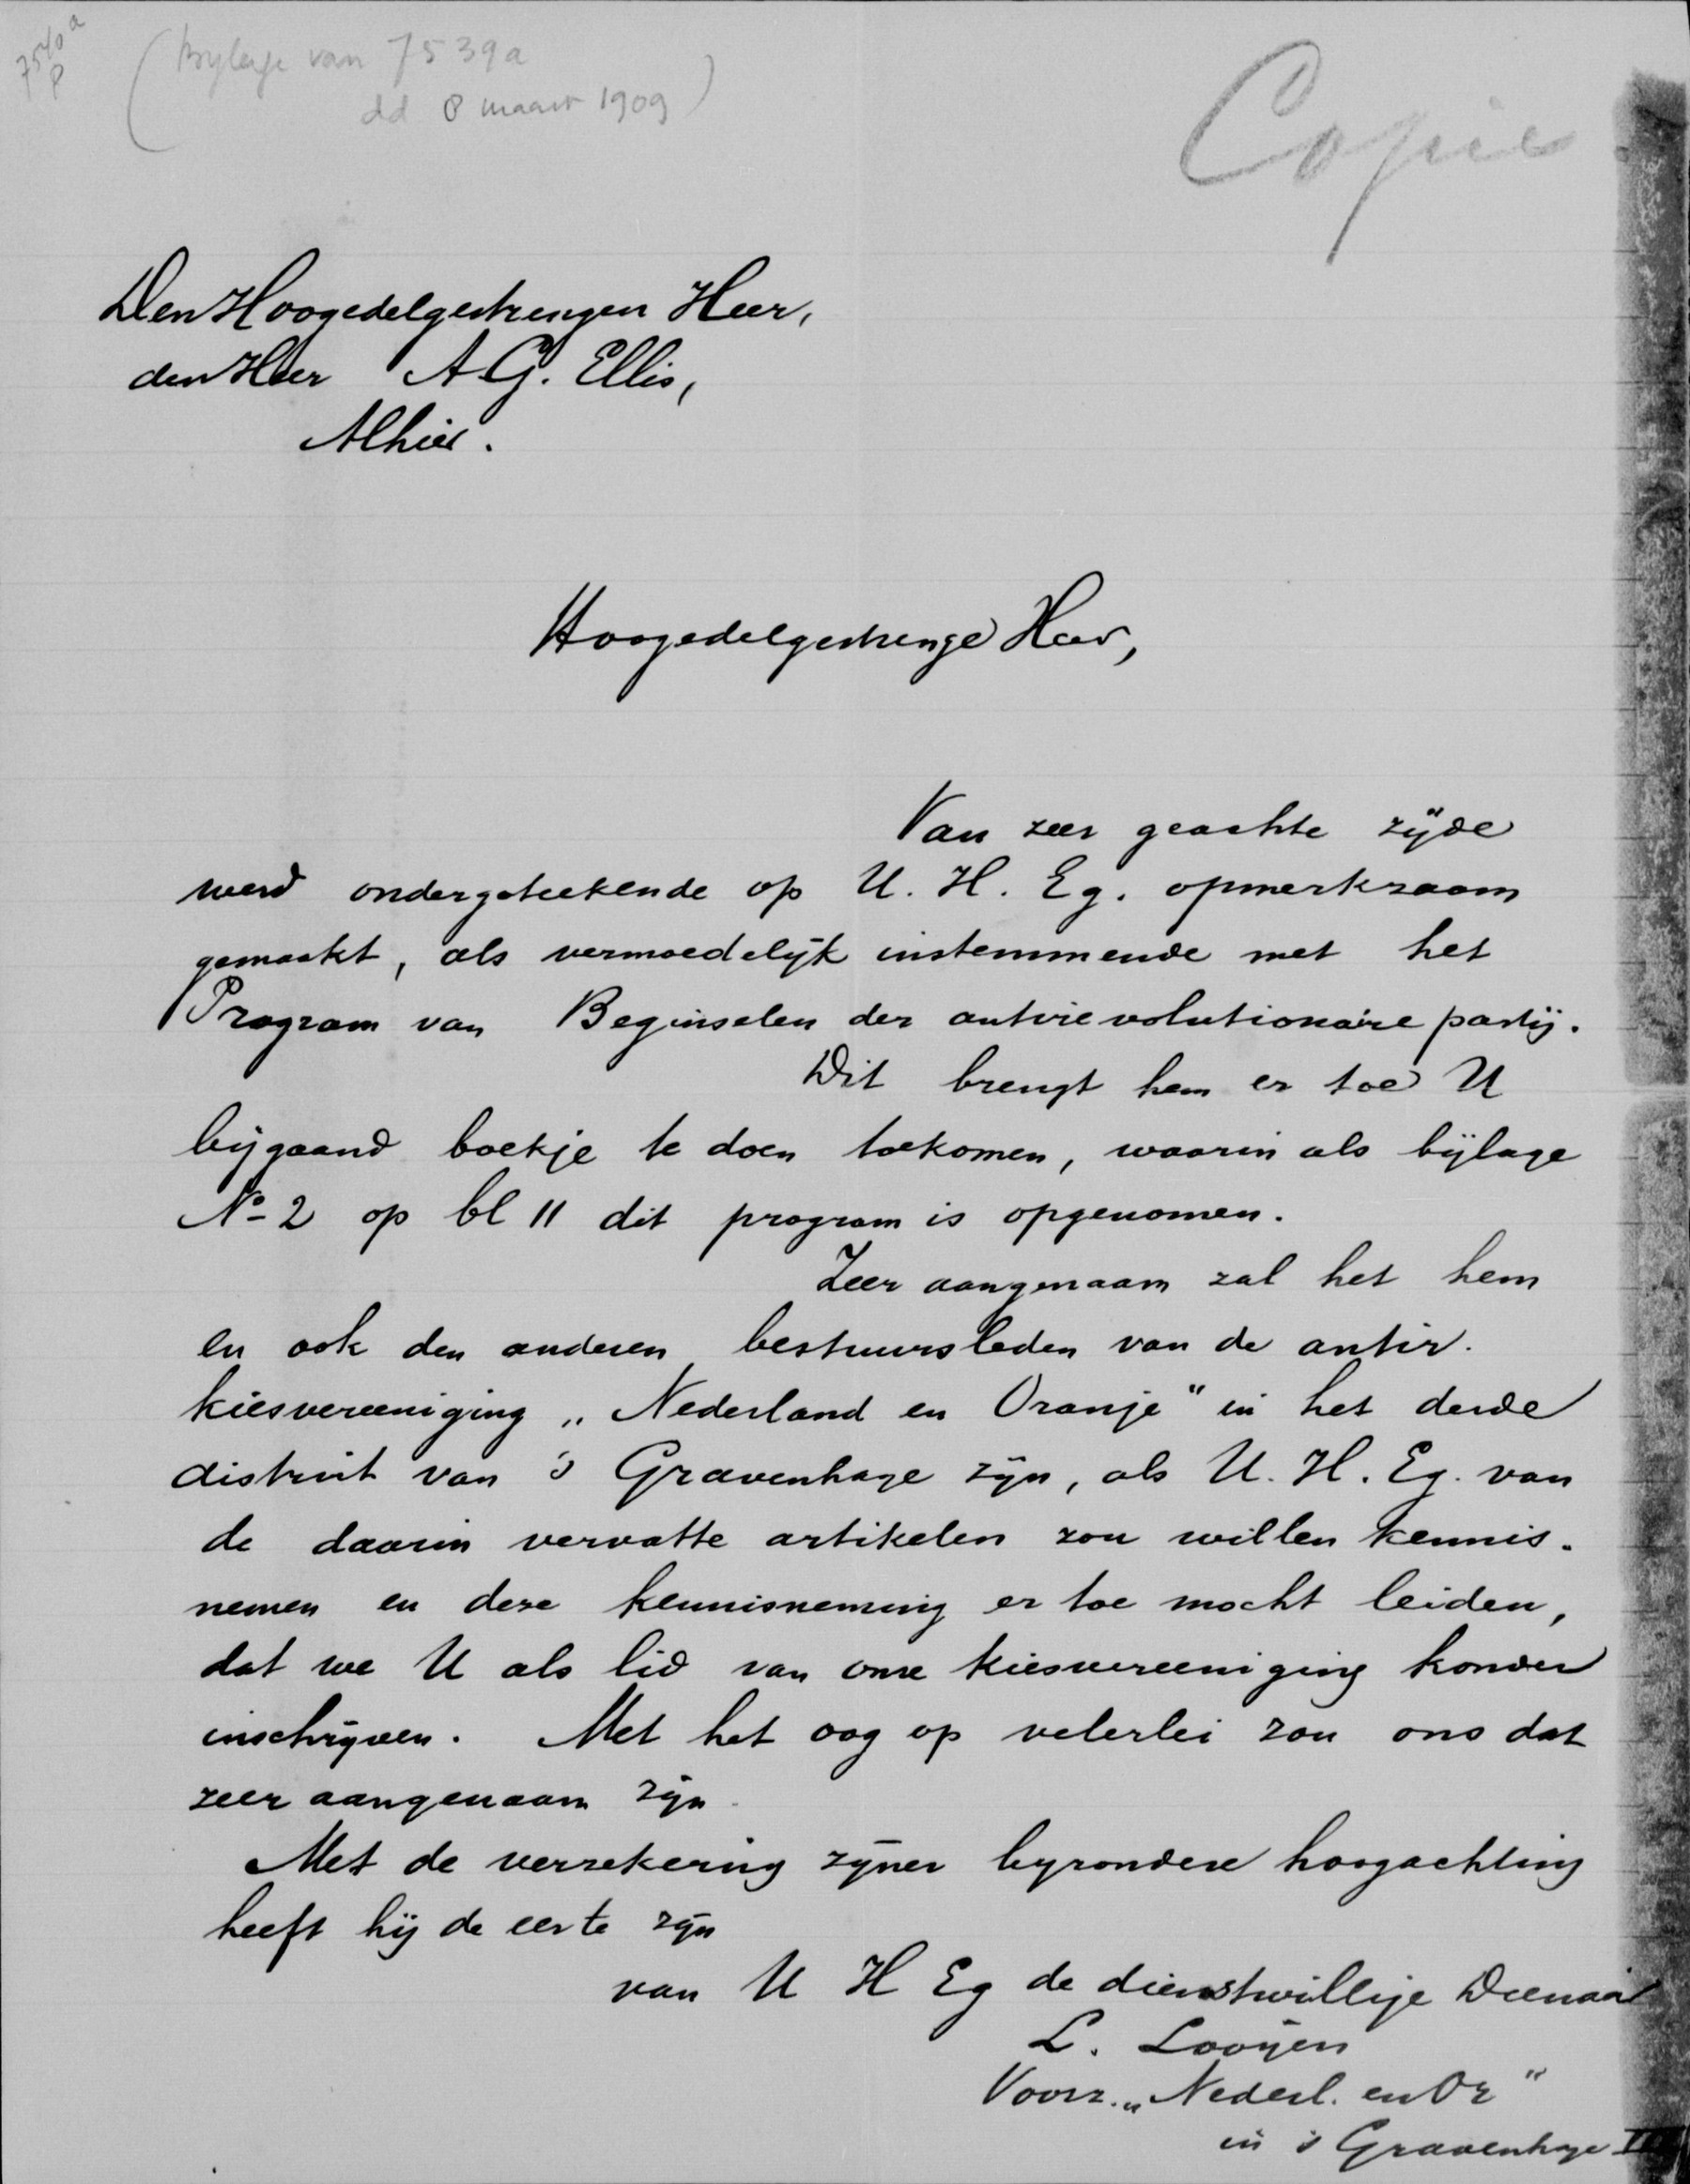 7540a
P
(Bylage van 7539a
dd 8 maart 1909)
Copie
Den Hoogedelgestrengen Heer,
den Heer A.G. Ellis,
Alhier.
Hoogedelgestrenge Heer,
Van zeer geachte zijde
werd ondergeteekende op U. H. Eg. opmerkzaam
gemaakt, als vermoedelijk instemmende met het
Program van Beginselen der antirevolutionaire partij.
Dit brengt hem er toe U
bijgaand boekje te doen toekomen, waarin als bijlage
No 2 op bl 11 dit program is opgenomen.
Zeer aangenaam zal het hem
en ook den anderen bestuursleden van de antir.
kiesvereeniging „Nederland en Oranje" in het derde
district van 's Gravenhage zijn, als U. H. Eg. van
de daarin vervatte artikelen zou willen kennis-
nemen en deze kennisneming er toe mocht leiden,
dat we U als lid van onze kiesvereeniging konden
inschrijven. Met het oog op velerlei zou ons dat
zeer aangenaam zijn.
Met de verzekering zijner byzondere hoogachting
heeft hij de eer te zijn
van U H Eg de dienstwillige Dienaar
L. Looijen
Voorz. „Nederl. en Or"
in 's Gravenhage III